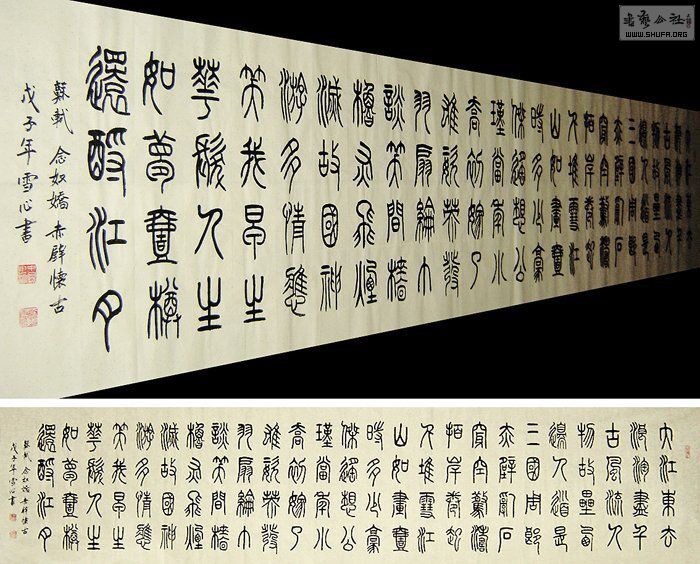 書藝公社
WWW.SHUFA.ORG
三國周郎
赤壁亂石
穿空驚濤
拍岸卷起
千堆雪江
山如畫壹
時多少豪
傑遙想公
瑾當年小
喬初嫁了
雄姿英發
羽扇綸巾
談笑間檣
櫓灰飛煙
滅故國神
遊多情應
笑我早生
華髮人生
如夢壹樽
還酹江月
蘇軾 念奴嬌 赤壁懷古
戊子年 雪心書
大江東去
浪淘盡千
古風流人
物故壘西
邊人道是
三國周郎
赤壁亂石
穿空驚濤
拍岸卷起
千堆雪江
山如畫壹
時多少豪
傑遙想公
瑾當年小
喬初嫁了
雄姿英發
羽扇綸巾
談笑間檣
櫓灰飛煙
滅故國神
遊多情應
笑我早生
華髮人生
如夢壹樽
還酹江月
蘇軾 念奴嬌 赤壁懷古
戊子年 雪心書